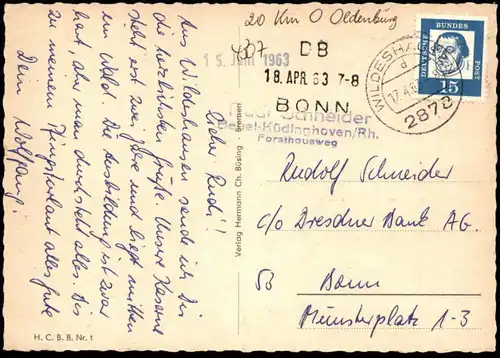 20 Km O Oldenburg
4307
15. Juni 1963
DB
18. APR. 63 7-8
BONN
WILDESHAUSEN
d
17.4.63
2878
DEUTSCHE BUNDESPOST
15
Schneider
Beuel-Küdinghoven/Rh.
Forsthausweg
Lieber Rudi!!
Aus Wildeshausen sende ich Dir
die herzlichsten Grüße. Unsere Kaserne
steht erst zwei Jahre und liegt mitten
im Wald. Die Ausbildung ist zwar
hart, aber man durchsteht alles. Bis
zu meinem Pfingsturlaub alles Gute
Dein Wolfgang.
Verlag Hermann Ch. Büsing · Bremen
Rudolf Schneider
c/o Dresdner Bank AG.
53 Bonn
Münsterplatz 1-3
H. C. B. B. Nr. 1